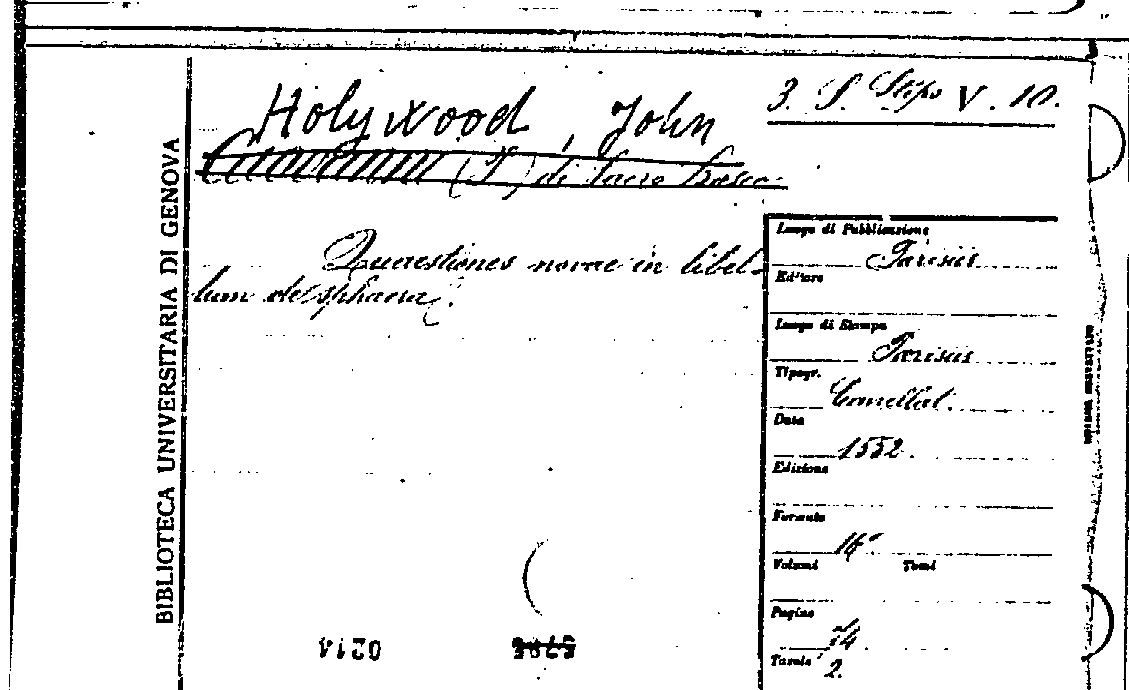 3. S. Stips V. 10.
Holywood, John
(J.) di Sacro Bosco
Quaestiones novae in libel-
lum de sphaera.
BIBLIOTECA UNIVERSITARIA DI GENOVA
Luogo di Pubblicazione
Parisiis
Editore
Luogo di Stampa
Parisiis
Tipogr.
Cavellat.
Data
1552.
Edizione
Formato
16°
Volumi Tomi
Pagine
74
Tavole 2.
0214